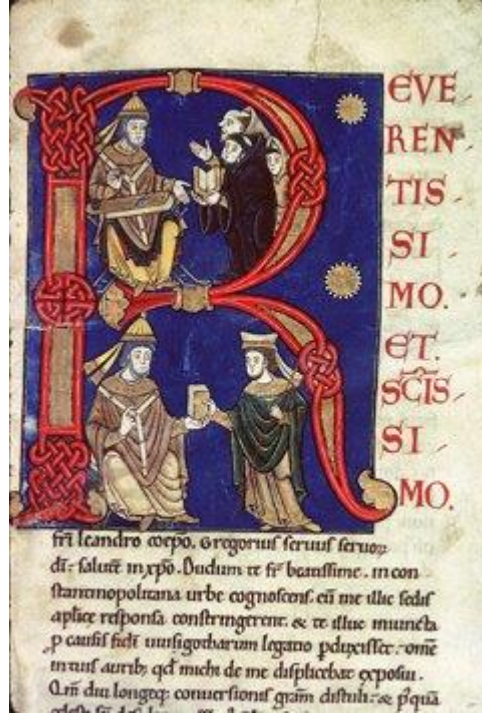 R
EVE
REN
TIS
SI
MO.
ET.
SCIS
SI
MO.
fri leandro coepo. Gregorius servus servor
di: salute in xpo. Dudum te fr beatissime. in con
stantinopolitana urbe cognoscens. cu me illic sedis
aplice responsa constringerent. & te illuc iniuncta
p causis fidei uuisigothorum legatio pduxisset. omne
in tuis aurib; qd michi de me displicebat exposui.
Qm diu longeq; conversionis gram distuli: & pqua